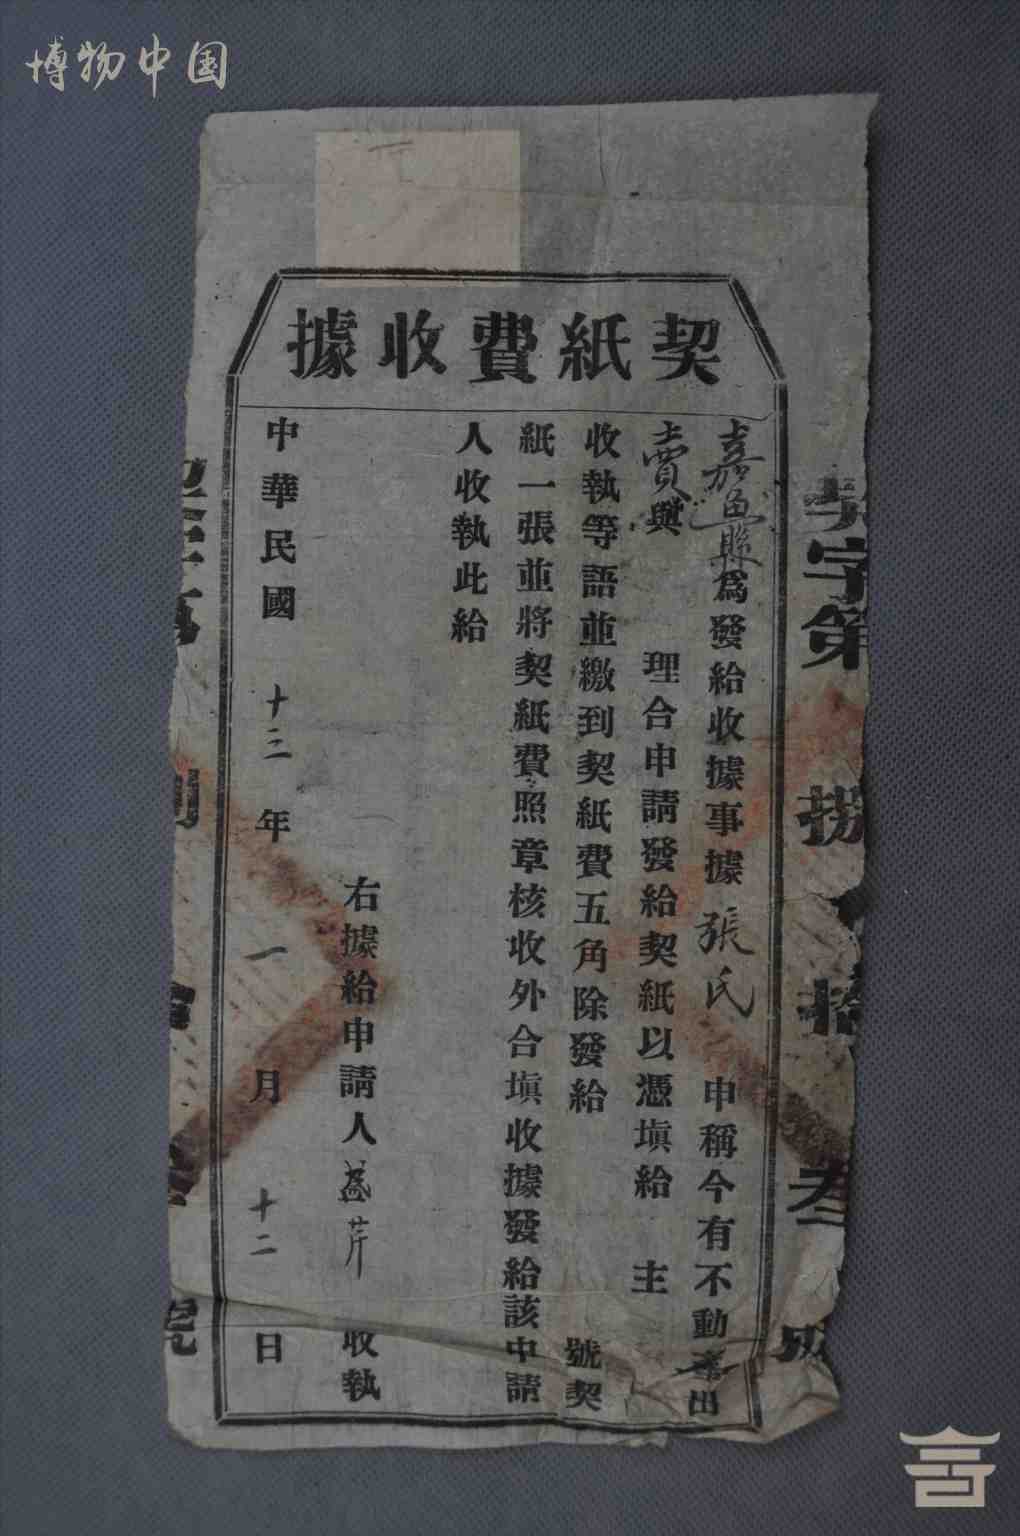 博物中国
契紙費收據
嘉魚縣爲發給收據事據張氏申稱今有不動產出
賣與 理合申請發給契紙以憑塡給 主
收執等語並繳到契紙費五角除發給 號契
紙一張並將契紙費照章核收外合塡收據發給該申請
人收執此給
右據給申請人 收執
中華民國十三年一月十二日
契字第